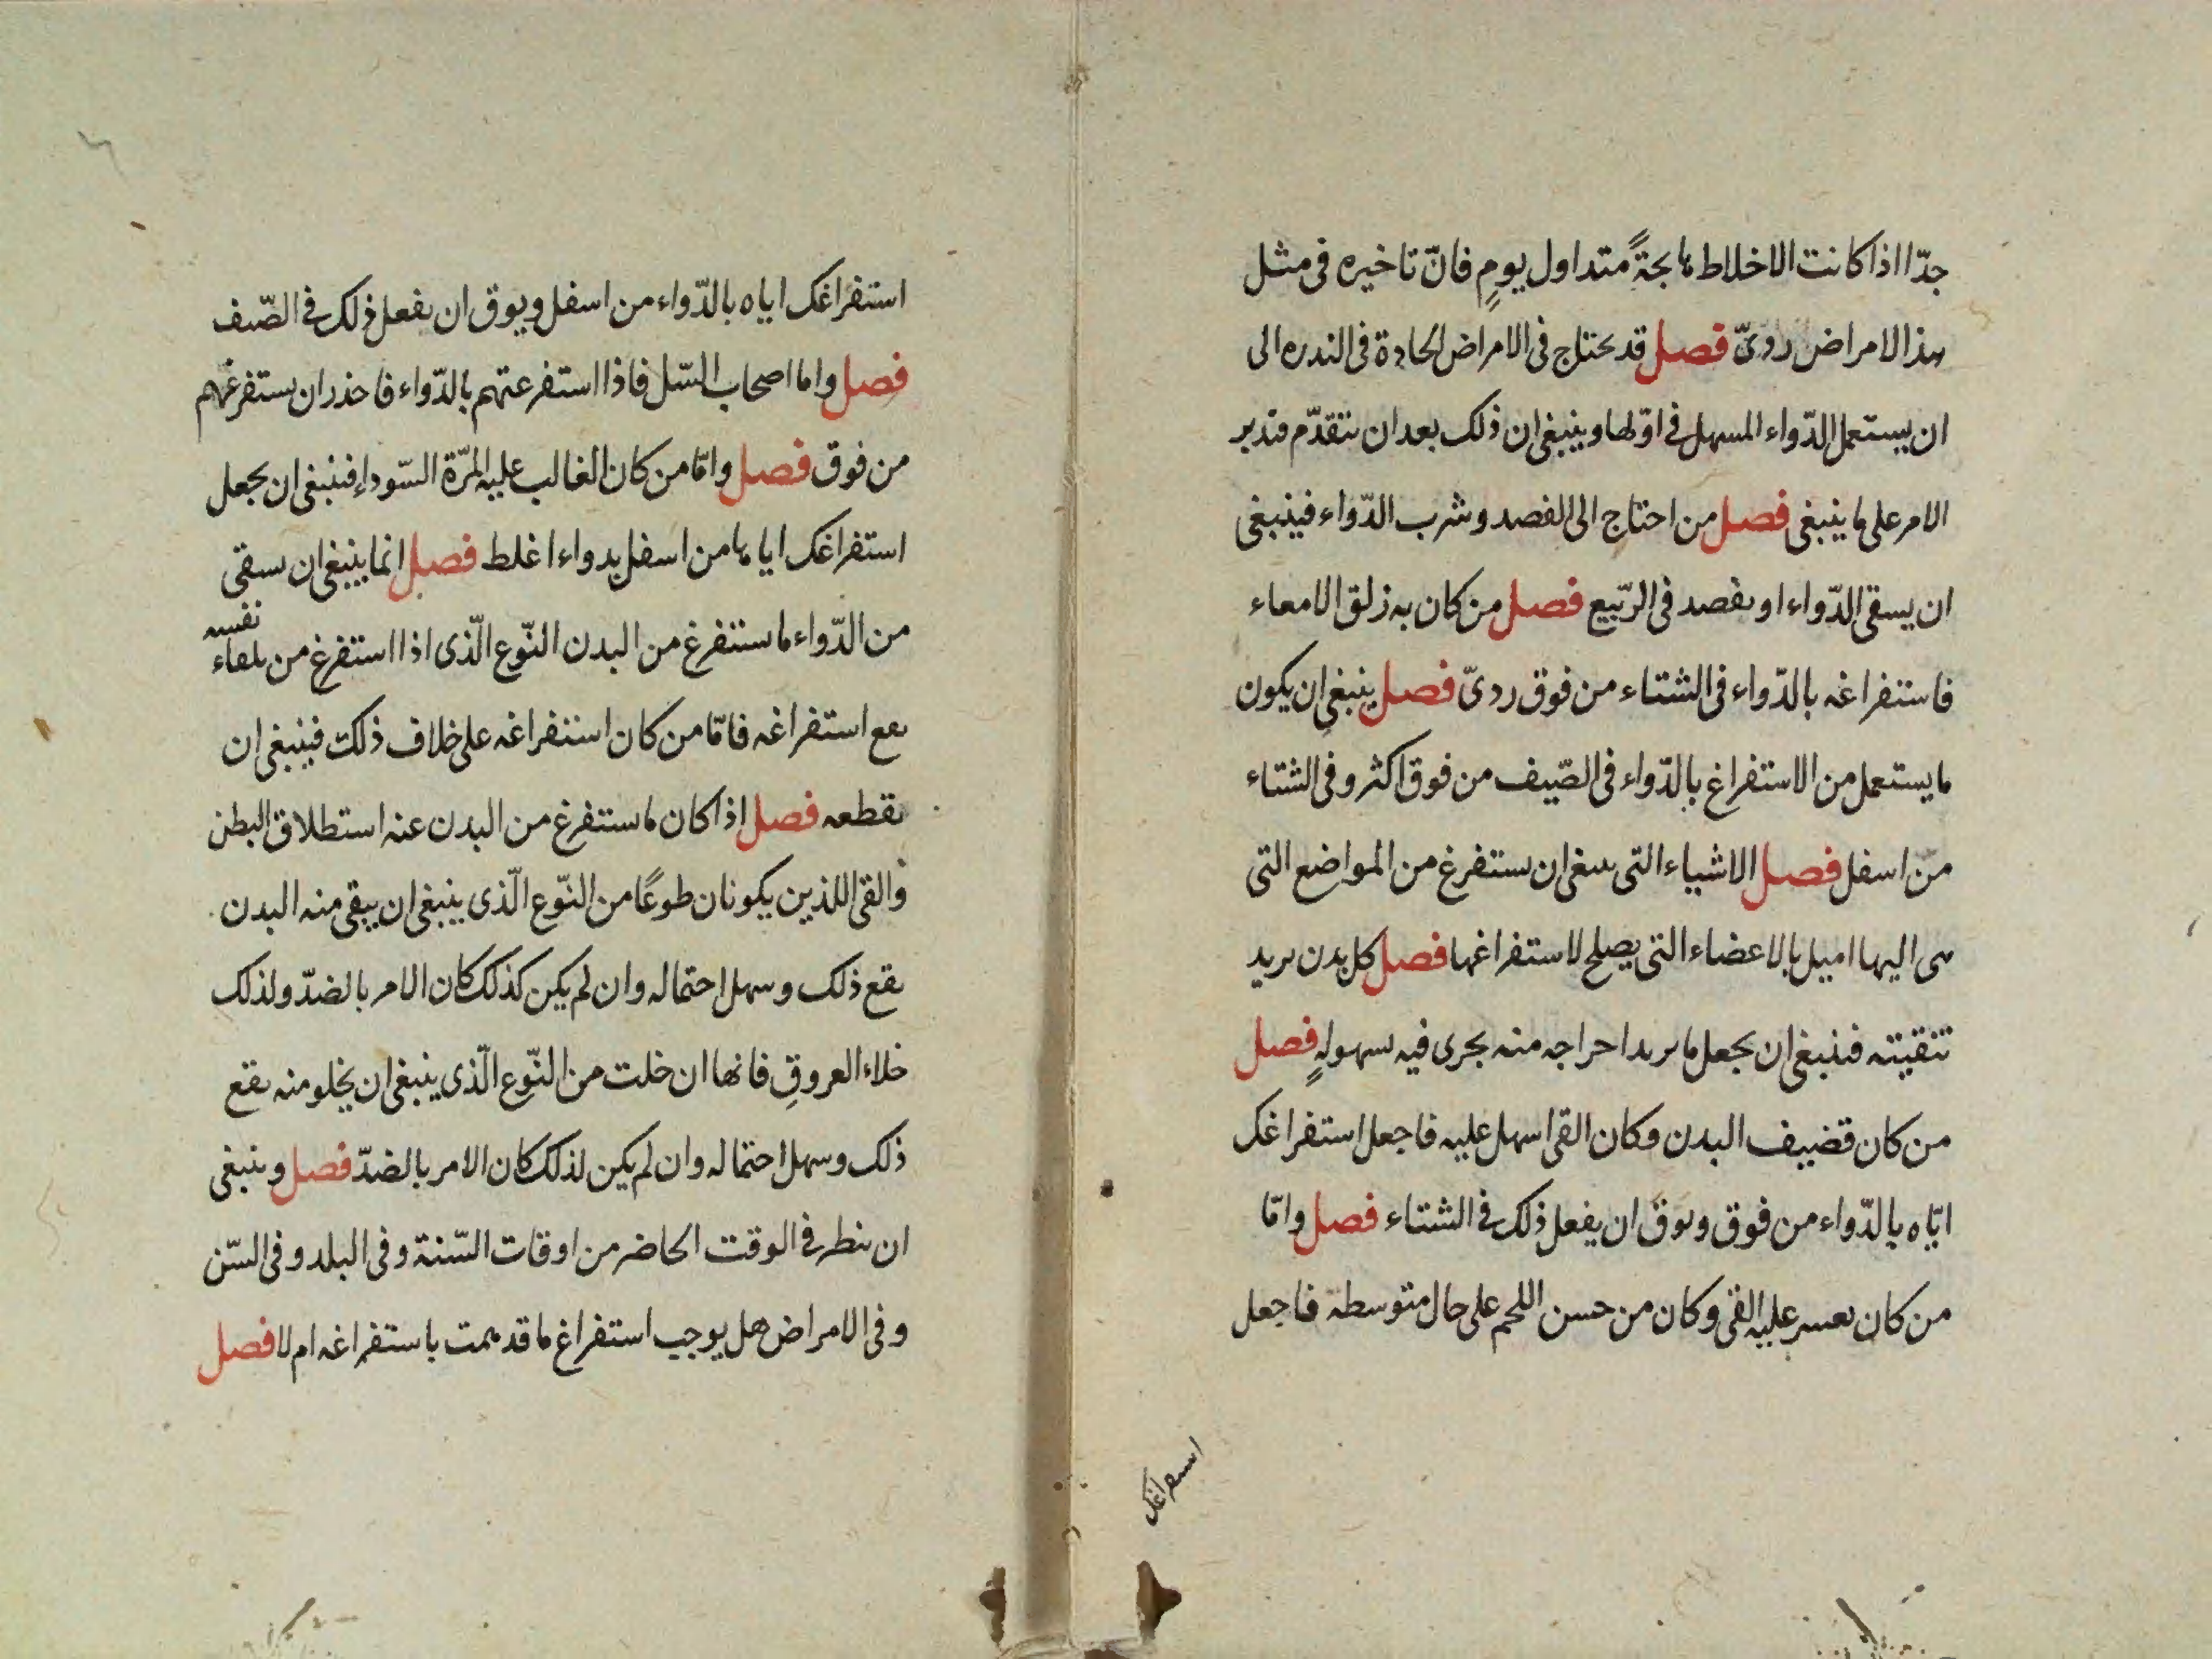 جدّا اذا كانت الاخلاط هايجةً متداول يومٍ فانّ تاخيره فى مثل
هذا الامراض ردىّ فصل قد يحتاج فى الامراض الحادة فى الندره الى
ان يستعمل الدّواء المسهل فى اوّلها وينبغى ان ذلك بعد ان نتقدّم فتدبر
الامر على ما ينبغى فصل من احتاج الى الفصد وشرب الدّواء فينبغى
ان يسقى الدّواء او يفصد فى الرّبيع فصل من كان به زلق الامعاء
فاستفراغه بالدّواء فى الشتاء من فوق ردىّ فصل ينبغى ان يكون
ما يستعمل من الاستفراغ بالدّواء فى الصّيف من فوق اكثر وفى الشتاء
من اسفل فصل الاشياء التى ينبغى ان يستفرغ من المواضع التى
هى اليها اميل بالاعضاء التى يصلح لاستفراغها فصل كل بدن يريد
تنقيته فينبغى ان يجعل ما يريد اخراجه منه يجرى فيه بسهولهٍ فصل
من كان قضيف البدن وكان القى اسهل عليه فاجعل استفراغك
ايّاه بالدّواء من فوق وبوق ان يفعل ذلك فى الشتاء فصل وامّا
من كان يعسر عليه القى وكان من حسن اللحم على حال متوسطه فاجعل
اسفراغك
استفراغك اياه بالدّواء من اسفل ويوق ان يفعل ذلك فى الصّيف
فصل واما اصحاب السّل فاذا استفرغتهم بالدّواء فاحذر ان يستفرغهم
من فوق فصل وامّا من كان الغالب عليه المرّة السّوداء فينبغى ان يجعل
استفراغك اياها من اسفل بدواء اغلط فصل انما ينبغى ان يسقى
من الدّواء ما يستفرغ من البدن النّوع الّذى اذا استفرغ من تلقاء نفسه
يقع استفراغه فامّا من كان استفراغه على خلاف ذلك فينبغى ان
يقطعه فصل اذا كان ما يستفرغ من البدن عنه استطلاق البطن
والقى اللذين يكونان طوعًا من النّوع الّذى ينبغى ان يبقى منه البدن
يقع ذلك وسهل احتماله وان لم يكن كذلك كان الامر بالضدّ ولذلك
خلاء العروقِ فانها ان خلت من النّوع الّذى ينبغى ان يخلو منه يقع
ذلك وسهل احتماله وان لم يكن لذلك كان الامر بالضدّ فصل وينبغى
ان ينظر فى الوقت الحاضر من اوقات السّنة وفى البلد وفى السّن
وفى الامراض هل يوجب استفراغ ما قد هممت باستفراغه ام لا فصل